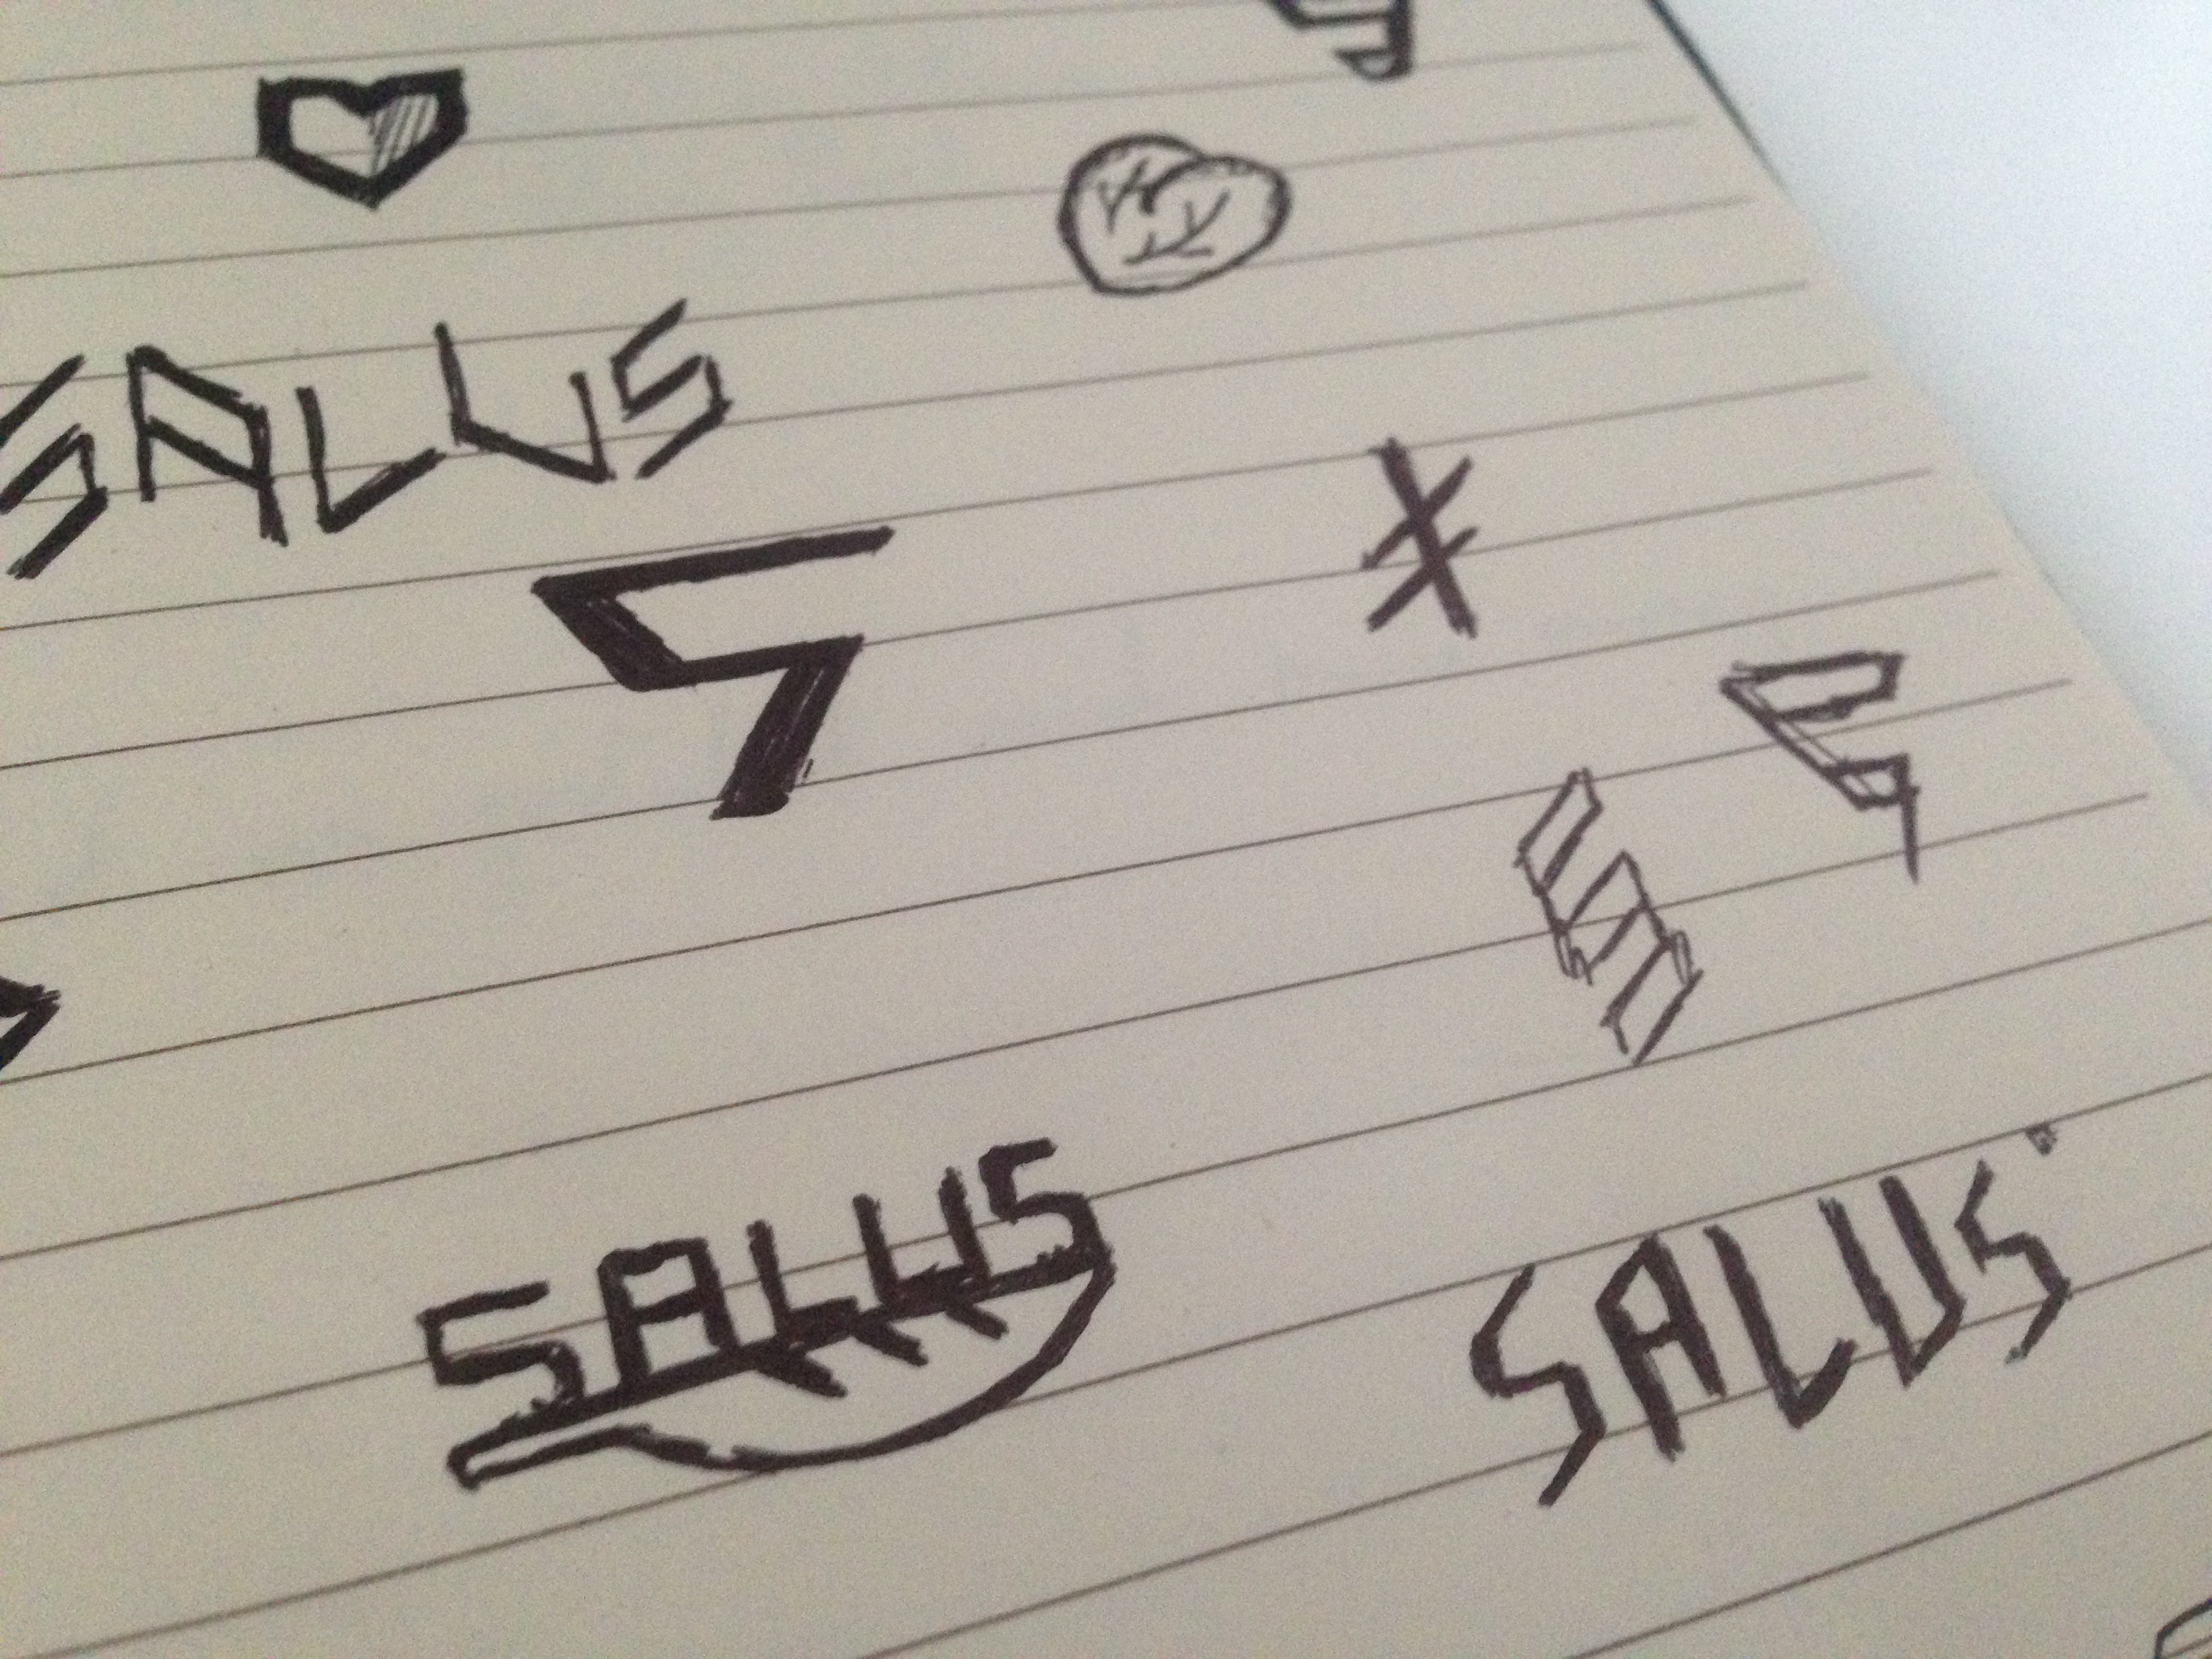 SALUS
S
SALUS
SALUS